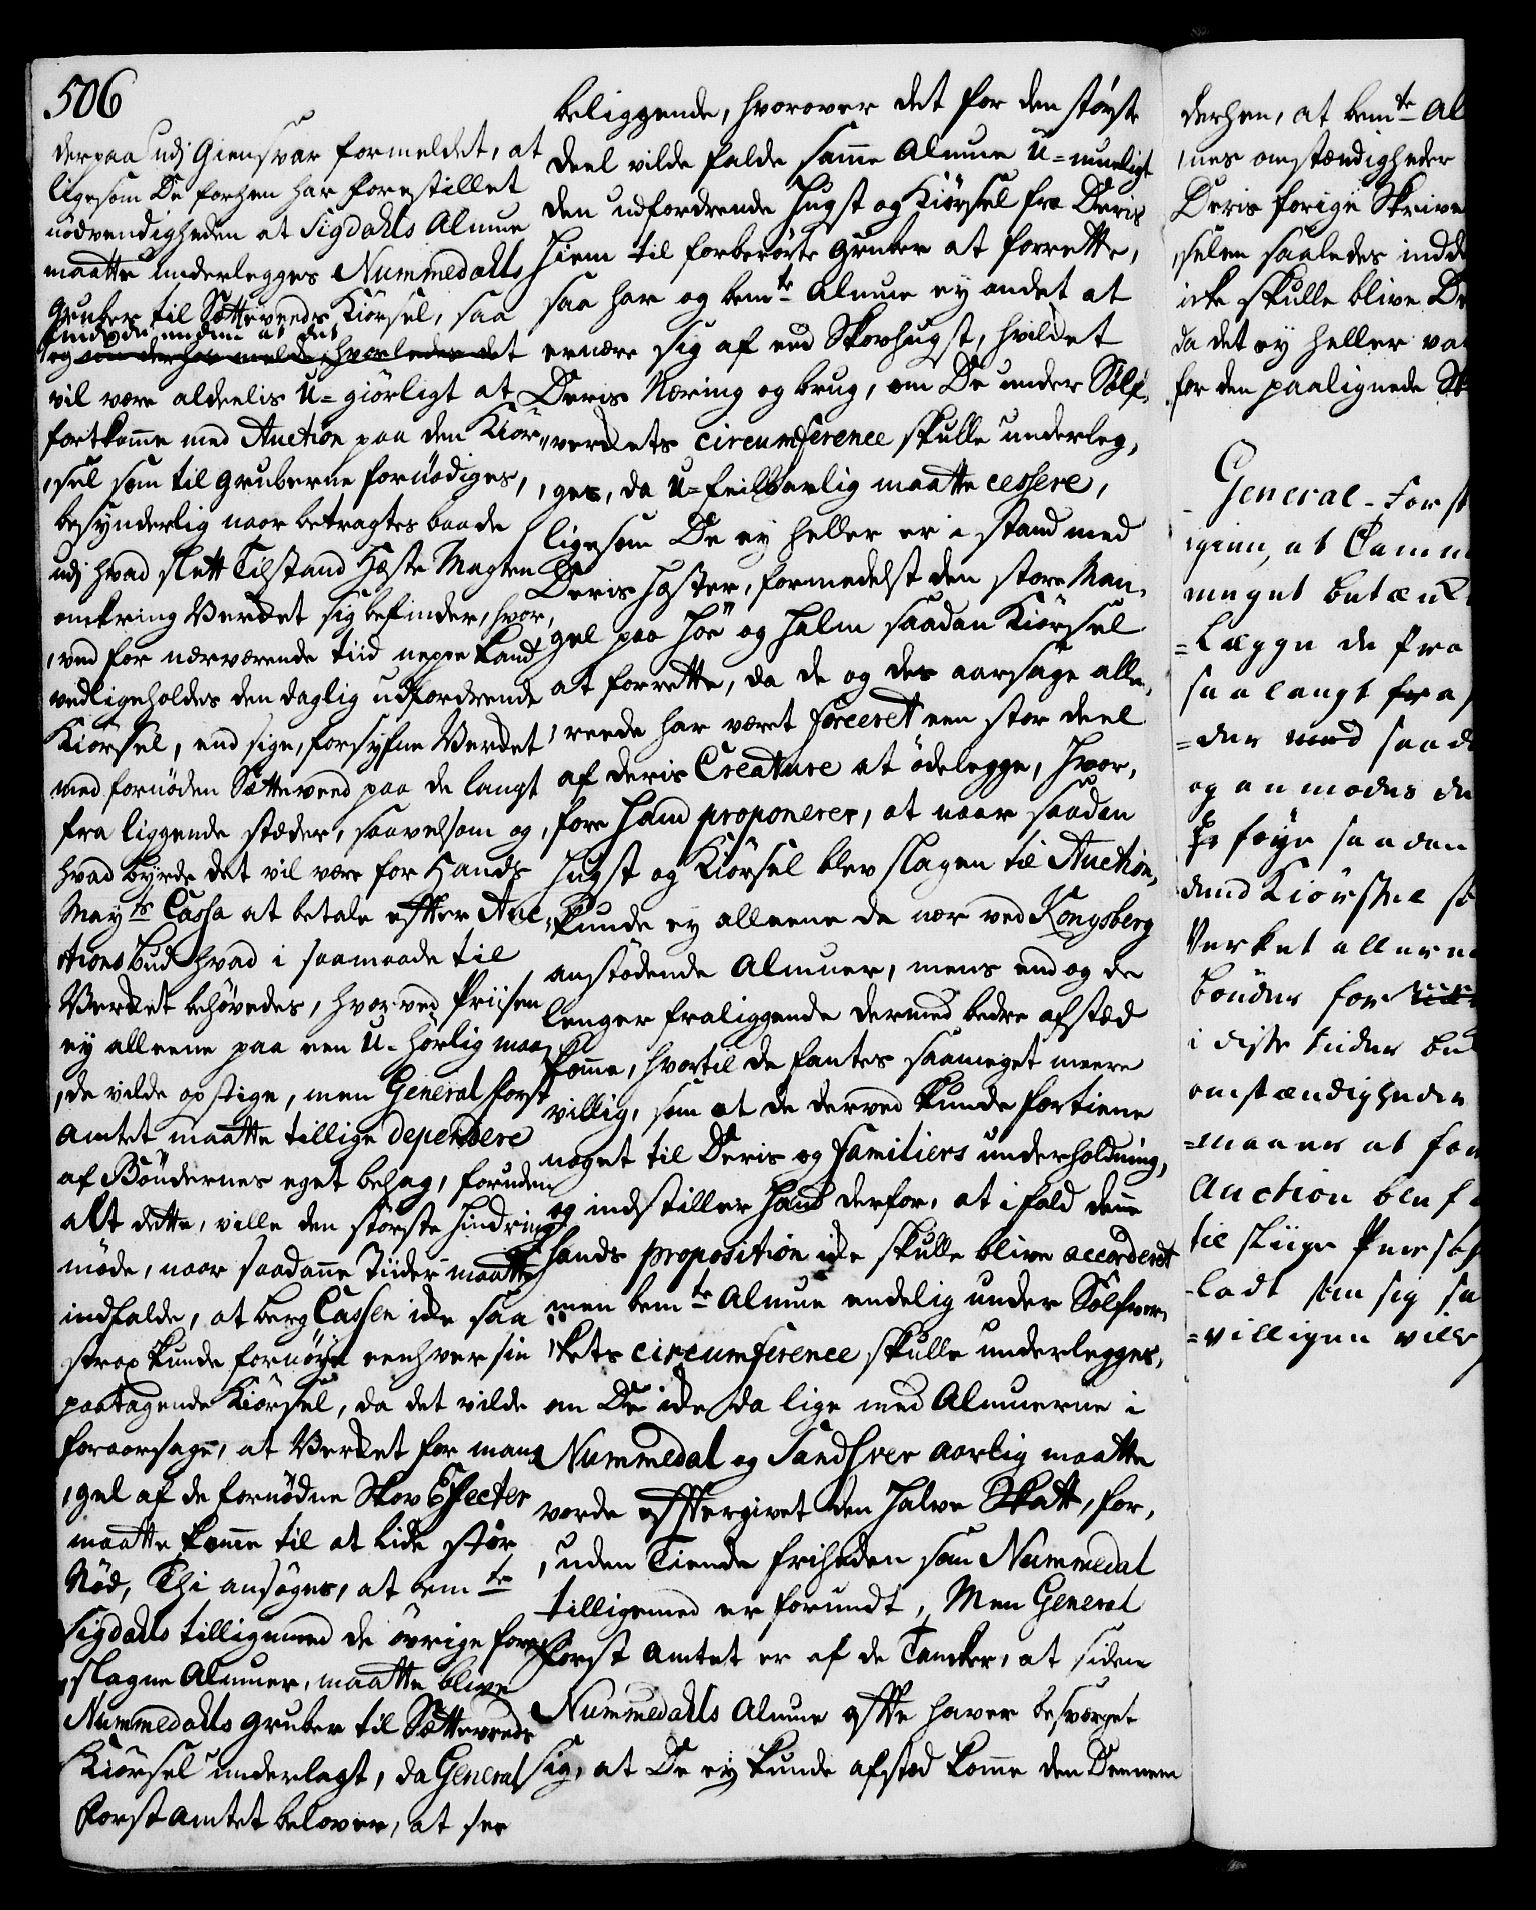 506
derpaa udj Giensvar formeldet, at
ligesom De forhen har forestillet
nödvendigheden at Sigdahls Almue
maatte underlegges Nummedahls
Gruber til Sætteveeds Kiörsel, saa
finde de endnu at det
og om derhos melde, hvorledes det
vil være aldeelis U-giörligt at
fortkomme med Auction paa den Kiör-
sel som til Gruberne fornödiges,
besynderlig naar betragtes baade
udj hvad slett Tilstand Hæste Magten
omkring Verket sig befinder, hvor,
ved for nærværende tiid neppe kand
vedligeholdes den daglig udfordrende
Kiörsel, end sige, forsyfne Verket
med fornöden Sætteveed paa de langt
fra liggende stæder, saavelsom og,
hvad byrde det vil være for Hands
Mayts Cassa at betale efter Auc-
tions Bud hvad i saamaade til
Verket behövedes, hvor ved Priisen
ey alleene paa een U-hörlig maa,
de vilde opstige, men General Forst
Amtet maatte tillige dependere
af Böndernes eget behag, foruden
alt dette, ville den störste Hindring
möde, naar saadanne Tiider maatte
indfalde, at berg Cassen icke saa
strax kunde fornöye eenhver sin
paatagende Kiörsel, da det vilde
foraarsage, at Verket for man-
gel af de fornödne Skov Effecter
maatte komme til at lide stor
Nöd, Thi ansöges, at bemte
Sigdahls tilligemed de övrige fore
slagne Almuer, maatte blive
Nummedahls Gruber til Sætteveeds
Kiörsel underlagt, da General
Forst Amtet belover, at see
beliggende, hvorover det for den störste
deel vilde falde samme Almue U-mueligt
den udfordrende Hugst og Kiörsel fra Deris
Hiem til forberörte Gruber at forrette,
saa har og bemte Almue ey andet at
ernære sig af end Skovhugst, hvilcket
Deris Næring og brug, om De under Sölf-
verkets circumference skulle underleg,
ges, da U-feilbarlig maatte cessere,
ligesom De ey heller er i stand med
Deris Hæster, formedelst den store Man,
gel paa Höe og Halm saadan Kiörsel
at forrette, da de og des aarsage alle,
reede har været forceret een stor deel
af deris Creature at ödelegge, Hvor,
fore Hand proponerer, at naar saadan
Hugst og Kiörsel blev slagen til Auction,
kunde ey alleene de nær ved Kongsberg
anstödende Almuer, mens end og de
lenger fraliggende dermed bedre afstæd
komme, hvortil de fantes saameget meere
villig, som at de derved kunde fortiene
noget til Deris og familiers underholdning,
og indstiller Hand derfor, at ifald denne
hands proposition icke skulle blive accorderet
men bemte Almue endelig under Sölfver,
kets circumference skulle underlegges,
om De icke da lige med Almuerne i
Nummedal og Sandsver aarlig maatte
vorde efftergivet den halve Skatt, for,
uden Tiende friheden som Nummedal
tilligemed er forundt, Men General
Forst Amtet er af de Tancker, at siden
Nummedahls Almue offte haver besværget
sig, at De ey kunde afsted komme den Dennem
derhen, at bemte Al
nes omstændigheder
Deris forige Skrive
selen saaledes indde
icke skulle blive De
da det ey heller va
for den paalignede Sk
General-Forst
igien, at Camm
meget betænk
=Lægge de fra
saa langt fra
=der med saad
og anmodes de
föye saadan
dend Kiörsele so
Verket allerne
bönder for
i disse tiider bet
omstændigheder
=maaer at for
Auction blef
til sliige Pers
-ladt som sig sa
=villigen ville